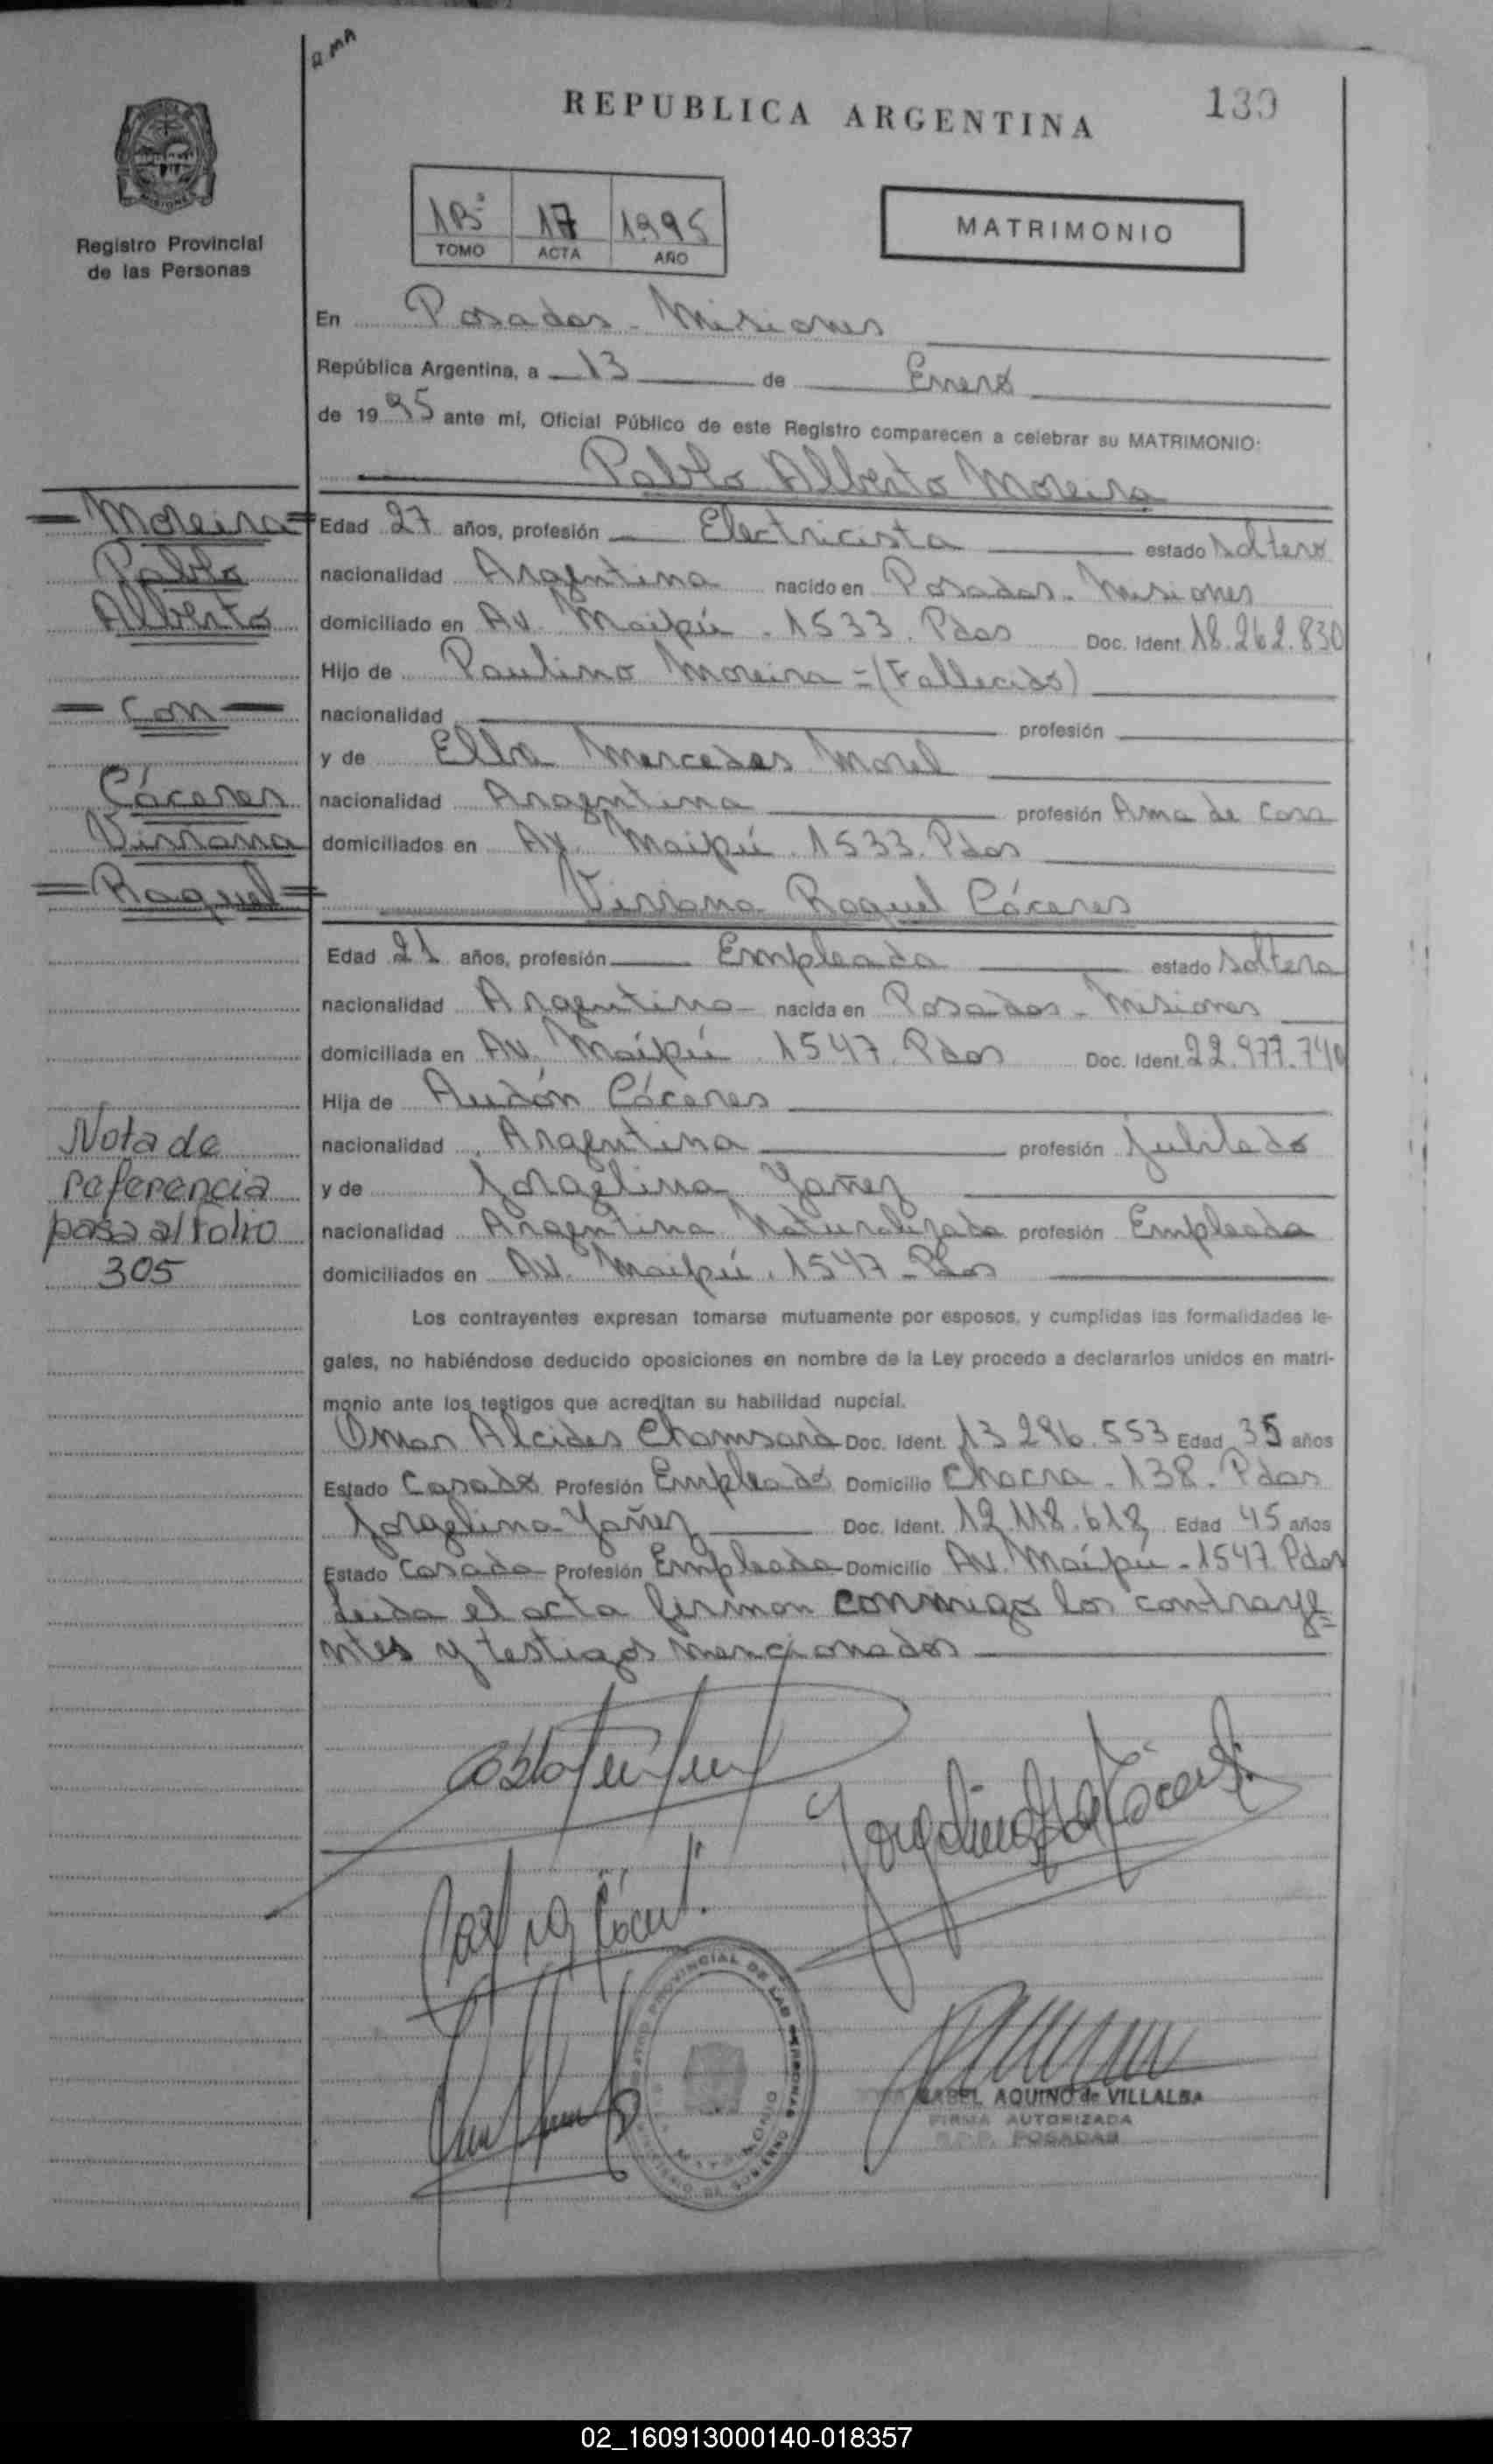 R MA
REPUBLICA ARGENTINA
139
Registro Provincial
de las Personas
1Bº 17 1995
TOMO ACTA AÑO
MATRIMONIO
En Posadas - Misiones
República Argentina, a 13 de Enero
de 1995 ante mí, Oficial Público de este Registro comparecen a celebrar su MATRIMONIO:
Pablo Alberto Moreira
Moreira
Pablo
Alberto
Con
Cáceres
Viviana
Raquel
Edad 27 años, profesión Electricista estado soltero
nacionalidad Argentina nacido en Posadas - Misiones
domiciliado en Av. Maipú - 1533. Pdas Doc. Ident. 18.262.830
Hijo de Paulino Moreira =(Fallecido)
nacionalidad profesión
y de Elba Mercedes Morel
nacionalidad Argentina profesión Ama de Casa
domiciliados en Av. Maipú . 1533. Pdas
Viviana Raquel Cáceres
Edad 21 años, profesión Empleada estado soltera
nacionalidad Argentina nacida en Posadas - Misiones
domiciliada en Av. Maipú . 1547. Pdas Doc. Ident. 22.977.740
Hija de Audón Cáceres
nacionalidad Argentina profesión Jubilado
y de Jorgelina Yañez
nacionalidad Argentina Naturalizada profesión Empleada
domiciliados en Av. Maipú . 1547 - Pdas
Nota de
referencia
pasa al folio
305
Los contrayentes expresan tomarse mutuamente por esposos, y cumplidas las formalidades le-
gales, no habiéndose deducido oposiciones en nombre de la Ley procedo a declararlos unidos en matri-
monio ante los testigos que acreditan su habilidad nupcial.
Omar Alcides Doc. Ident. 13.296.553 Edad 35 años
Estado Casado Profesión Empleado Domicilio Chacra - 138. Pdas
Jorgelina Yañez Doc. Ident. 12.118.618 Edad 45 años
Estado Casada Profesión Empleada Domicilio Av. Maipú - 1547 Pdas
Leída el acta firman conmigo los contraye=
ntes y testigos mencionados
REGISTRO PROVINCIAL DE LAS PERSONAS
MINISTERIO DE GOBIERNO
MATRIMONIO
ISABEL AQUINO de VILLALBA
FIRMA AUTORIZADA
R.P.P. POSADAS
02_160913000140-018357